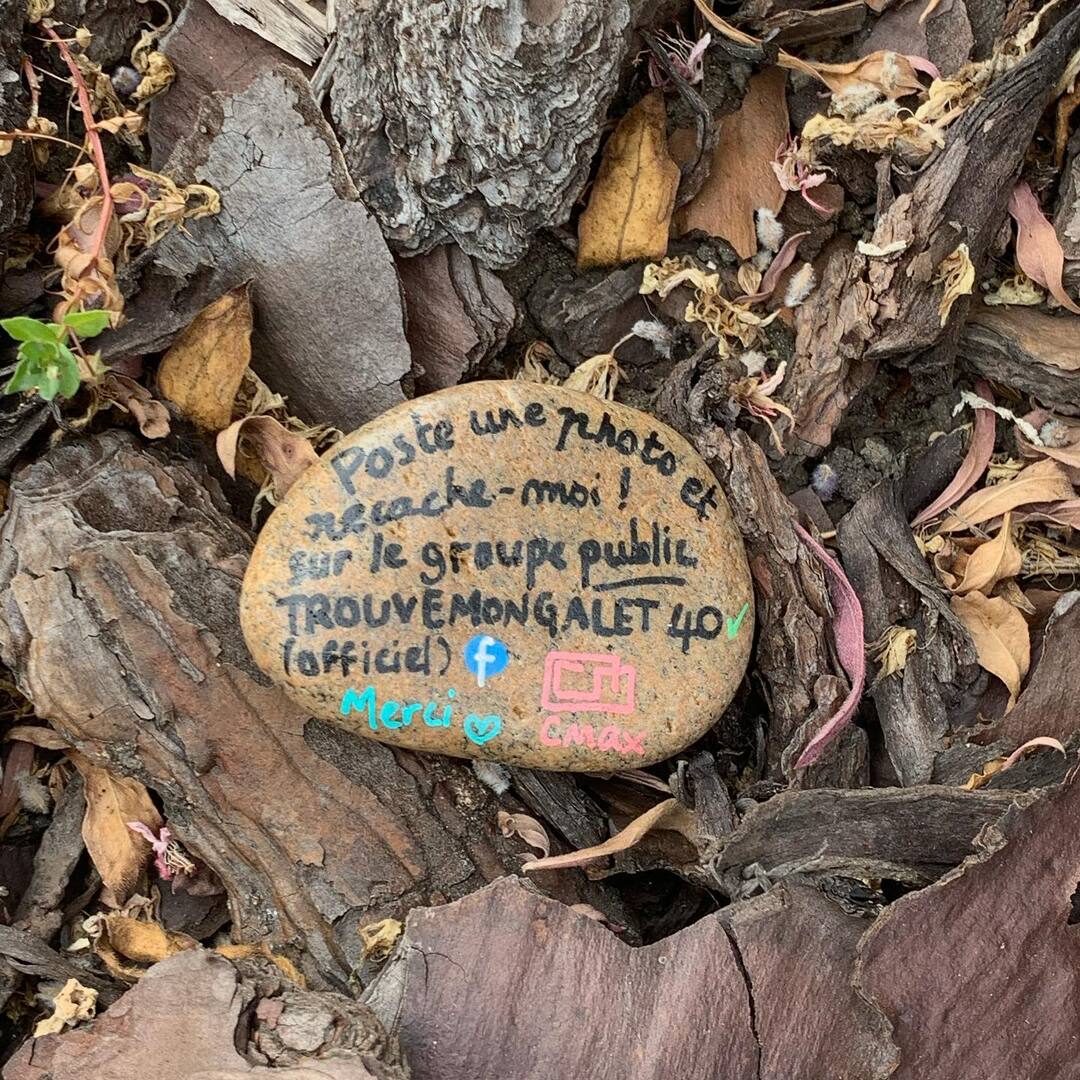 Poste une photo et
recache-moi !
sur le groupe public
TROUVEMONGALET 40
(officiel) f
Merci
Cmax